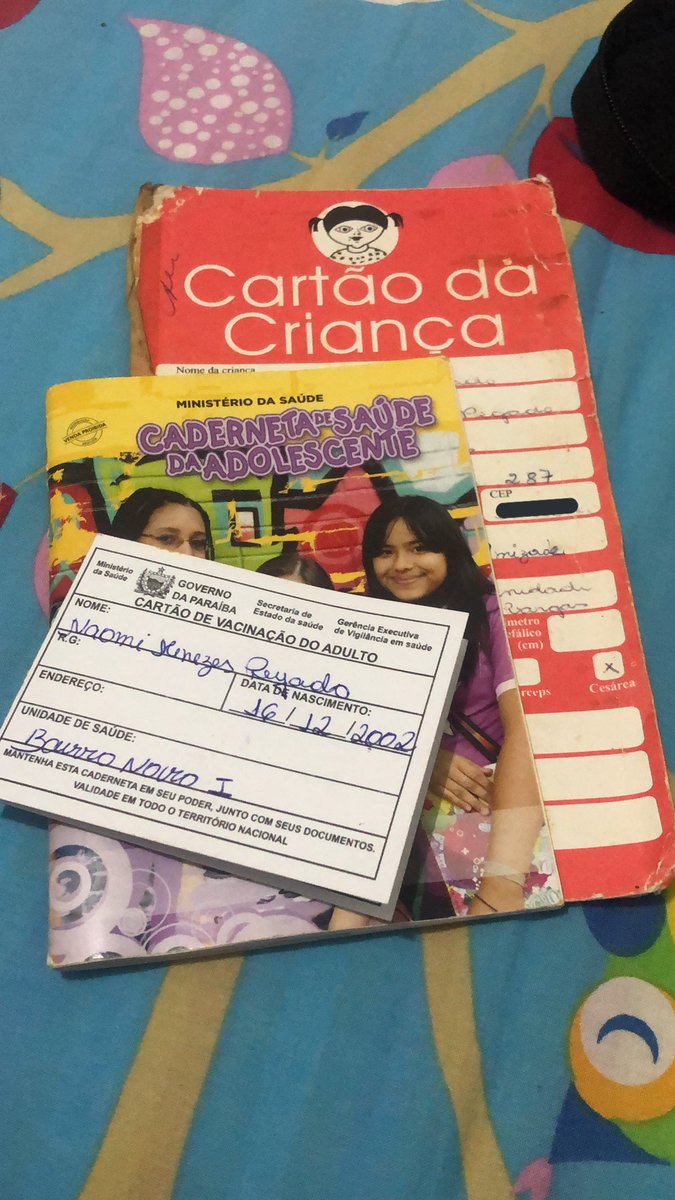 Cartão da
Criança
Nome da criança
287
CEP
(cm)
Cesárea
x
MINISTÉRIO DA SAÚDE
VENDA PROIBIDA
CADERNETA DE SAÚDE
DA ADOLESCENTE
Ministério
da Saúde
GOVERNO
DA PARAÍBA
Secretaria de
Estado da saúde
Gerência Executiva
de Vigilância em saúde
CARTÃO DE VACINAÇÃO DO ADULTO
NOME: Naomi Menezes Regado
R.G:
DATA DE NASCIMENTO:
16/12/2002
ENDEREÇO:
UNIDADE DE SAÚDE:
Bairro Novo I
MANTENHA ESTA CADERNETA EM SEU PODER, JUNTO COM SEUS DOCUMENTOS.
VALIDADE EM TODO O TERRITÓRIO NACIONAL